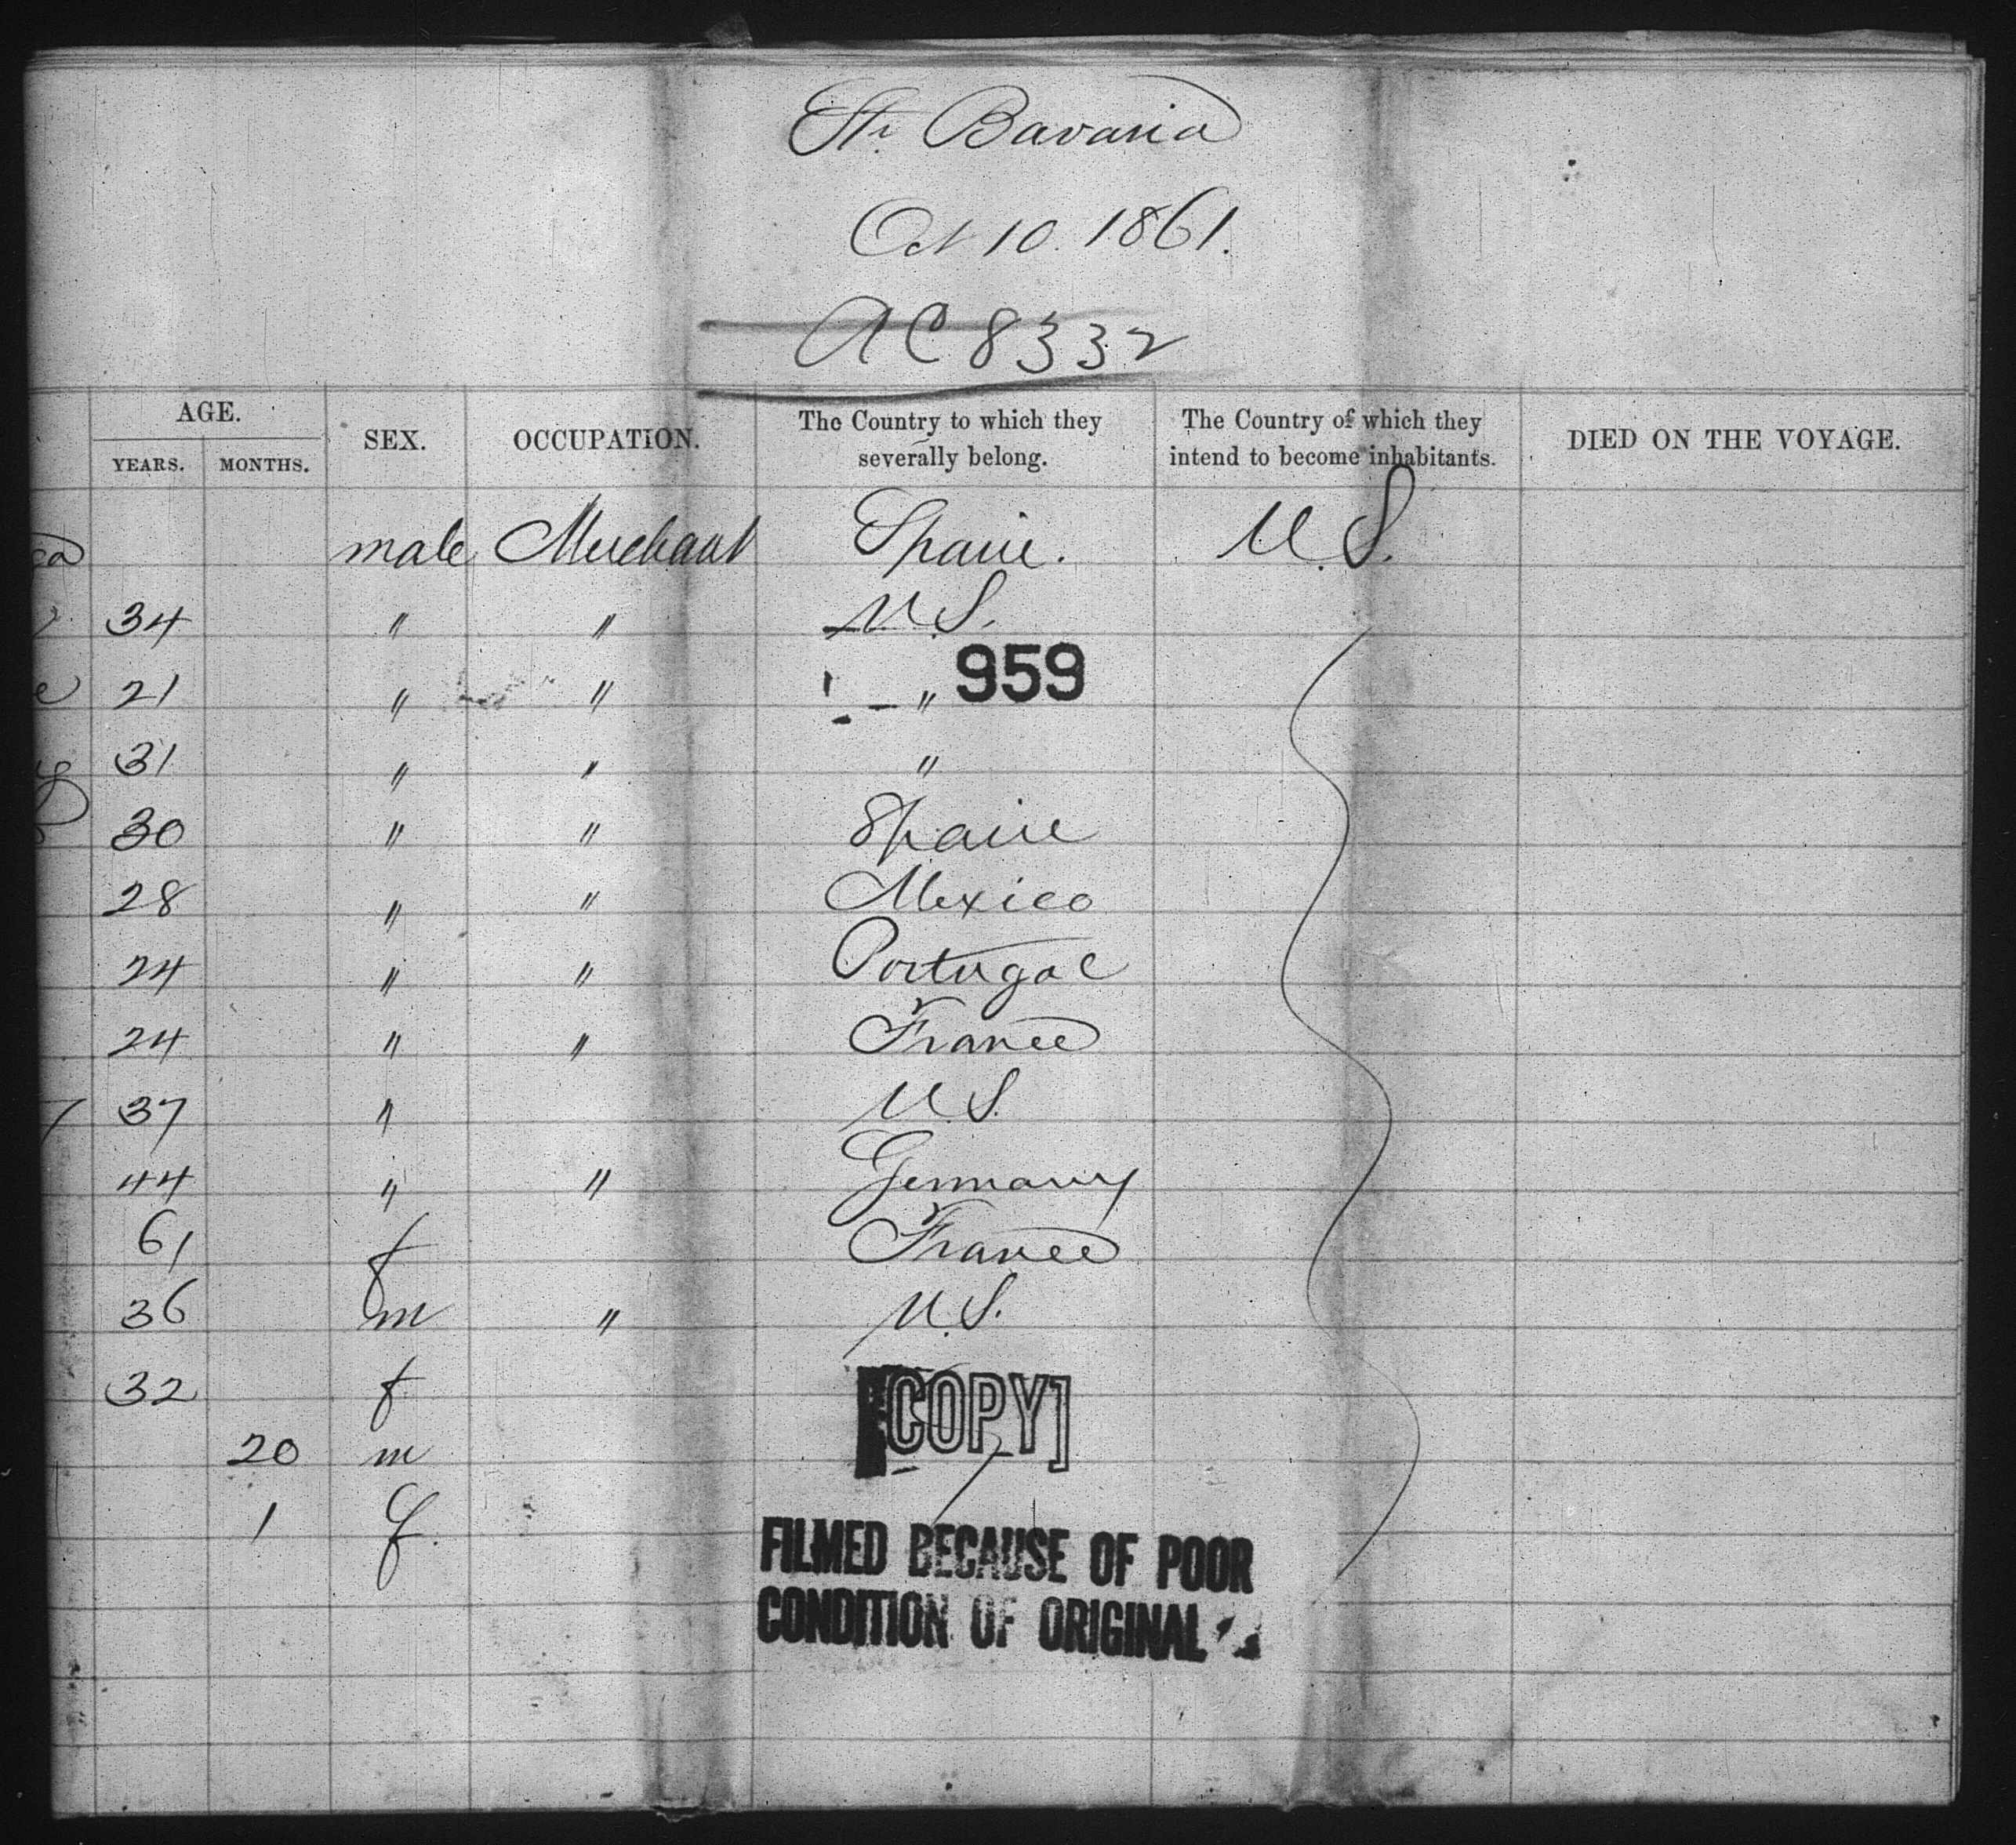 Str. Bavaria
Oct 10. 1861.
AC 8332
AGE.
YEARS. MONTHS. SEX. OCCUPATION. The Country to which they severally belong. The Country of which they intend to become inhabitants. DIED ON THE VOYAGE.
male Merchant Spain. U.S.
34 " " U.S.
21 " " " 959
31 " " "
30 " " Spain
28 " " Mexico
24 " " Portugal
24 " " France
37 " U.S.
44 " " Germany
61 f France
36 m " U.S.
32 f
[COPY]
20 m
1 f.
FILMED BECAUSE OF POOR
CONDITION OF ORIGINAL